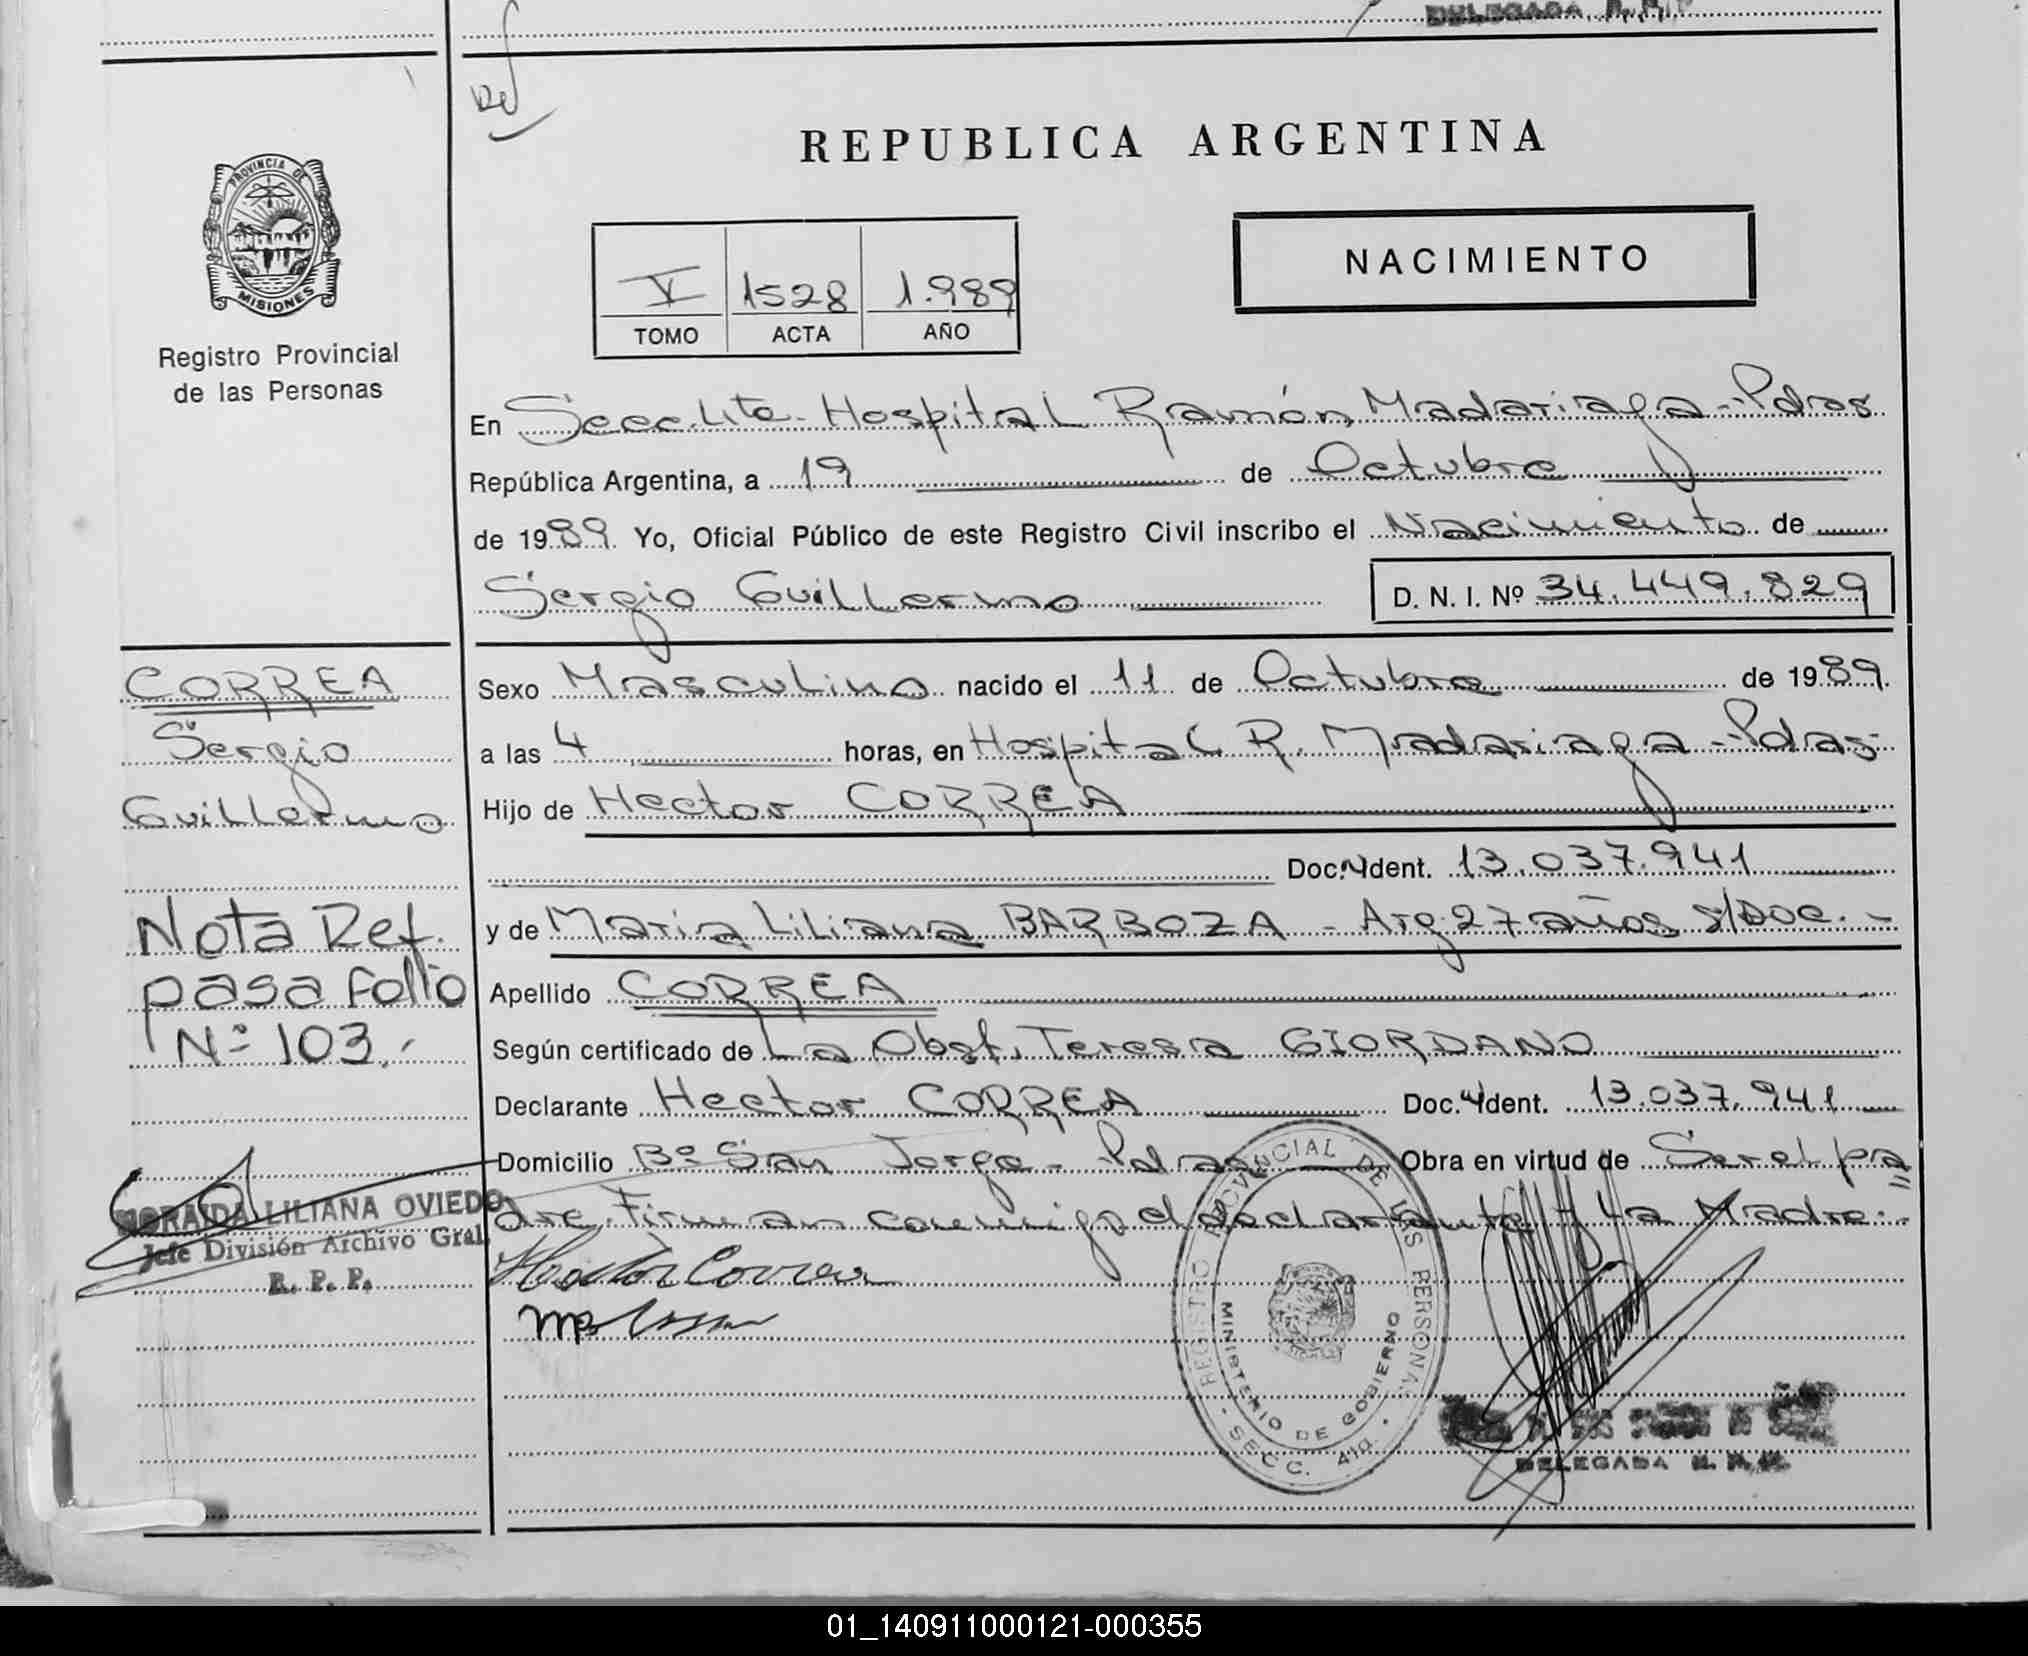 DELEGADA R. P. P.
REPUBLICA ARGENTINA
PROVINCIA DE
MISIONES
Registro Provincial
de las Personas
NACIMIENTO
V 1528 1.989
TOMO ACTA AÑO
En Secc. 4ta. Hospital Ramón Madariaga - Pdas
República Argentina, a 19 de Octubre
de 1989. Yo, Oficial Público de este Registro Civil inscribo el Nacimiento de
Sergio Guillermo D. N. I. Nº 34.449.829
CORREA
Sergio
Guillermo
Nota Ref.
pasa folio
Nº 103.-
Sexo Masculino nacido el 11 de Octubre de 1989.
a las 4 horas, en Hospital R. Madariaga - Pdas-
Hijo de Hector CORREA
Doc. Ident. 13.037.941
y de Maria Liliana BARBOZA - Arg. 27 años s/Doc. -
Apellido CORREA
Según certificado de La Obst. Teresa GIORDANO
Declarante Hector CORREA Doc. Ident. 13.037.941
Domicilio Bº San Jorge - Pdas Obra en virtud de Ser el pa
dre. Firman conmigo el declarante y la Madre.-
Hector Correa
MORAIDA LILIANA OVIEDO
Jefe División Archivo Gral.
R. P. P.
REGISTRO PROVINCIAL DE LAS PERSONAS
MINISTERIO DE GOBIERNO
SECC. 4ta.
DELEGADA R. P. P.
01_140911000121-000355